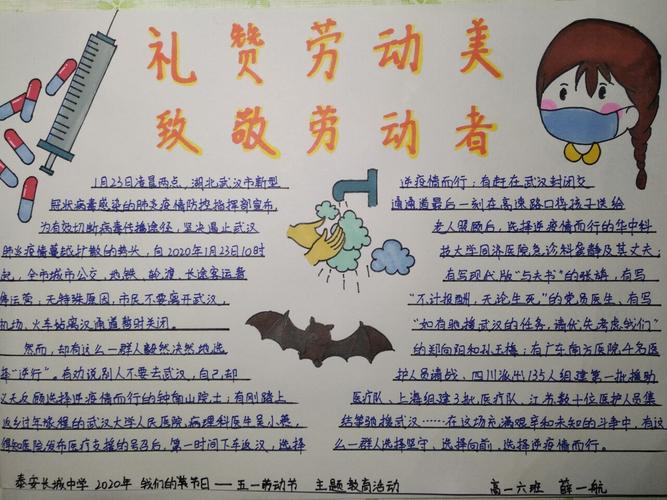 礼赞劳动美
致敬劳动者
1月23日凌晨两点，湖北武汉市新型
冠状病毒感染的肺炎疫情防控指挥部宣布，
为有效切断病毒传播途径，坚决遏止武汉
肺炎疫情蔓延扩散的势头，自2020年1月23日10时
起，全市城市公交、地铁、轮渡、长途客运暂
停运营，无特殊原因，市民不要离开武汉，
机场、火车站离汉通道暂时关闭。
然而，却有这么一群人毅然决然地选
择“逆行”。有劝说别人不要去武汉，自己却
义无反顾选择逆疫情而行的钟南山院士；有刚踏上
返乡过年旅程的武汉大学人民医院病理科医生吴小艳，
得知医院发布医疗支援的号召后，第一时间下车返汉，选择
逆疫情而行；有赶在武汉封闭交
通通道最后一刻在高速路口将孩子送给
老人照顾后，选择逆疫情而行的华中科
技大学同济医院急诊科蛮静及其丈夫；
有写现代版“与夫书”的张旃，有写
“不计报酬，无论生死”的党员医生、有写
“如有驰援武汉的任务，请优先考虑我们”
的郑向阳和孙玉梅；有广东南方医院4名医
护人员请战、四川派出135人组建第一批援助
医疗队、上海组建3批医疗队、江苏数十位医护人员集
结等驰援武汉……在这场充满艰辛和未知的斗争中，有这
么一群人选择坚守、选择向前、选择逆疫情而行。
泰安长城中学 2020年 我们的节日——五一劳动节 主题教育活动 高一六班 薛一航